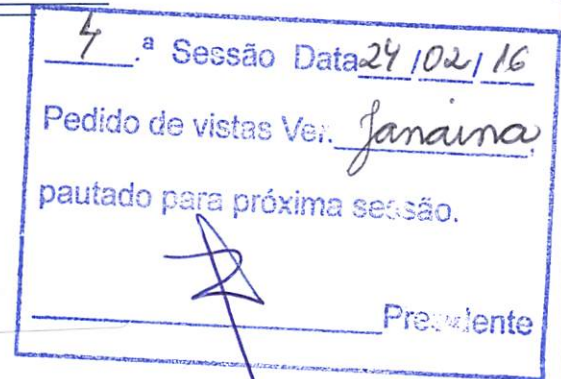 4.ª Sessão Data 24/02/16
Pedido de vistas Ver. Janaina,
pautado para próxima sessão.
Presidente